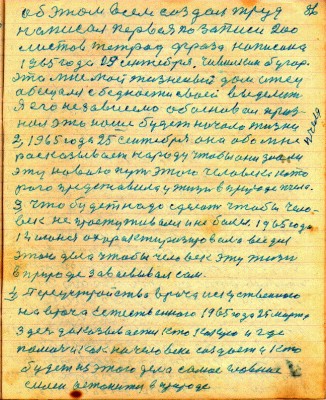 об этом всем создал труд 86
написал первая по записи 200
листов тетрад фраза написана
1965 года 19 сентября. Чивилкин бугор.
это мне мой жизненый дом
обещали с бедности своей выделит
Я его независемо обосновал приз-
нал это наше будет начало жизни
2, 1965 года 25 сентября она обо мне
росказывает народу чтобы они знали
эту новова пут этого человека кото
рого представила у жизн в природе
3, что будет надо сделат чтобы чело-
век не простуживался и не болел. 1965 года
14 июня охарактиризировала все дня
этого дела чтобы человек эту жизн
в природе завоевывал сам.
4, Переустройства врача искуственого
на врача естественного 1965 года 25 марта
Здес доказывает кто кому и где
помочи как на человеке создает и кто
будет на этого дела самое главные
силы в природе